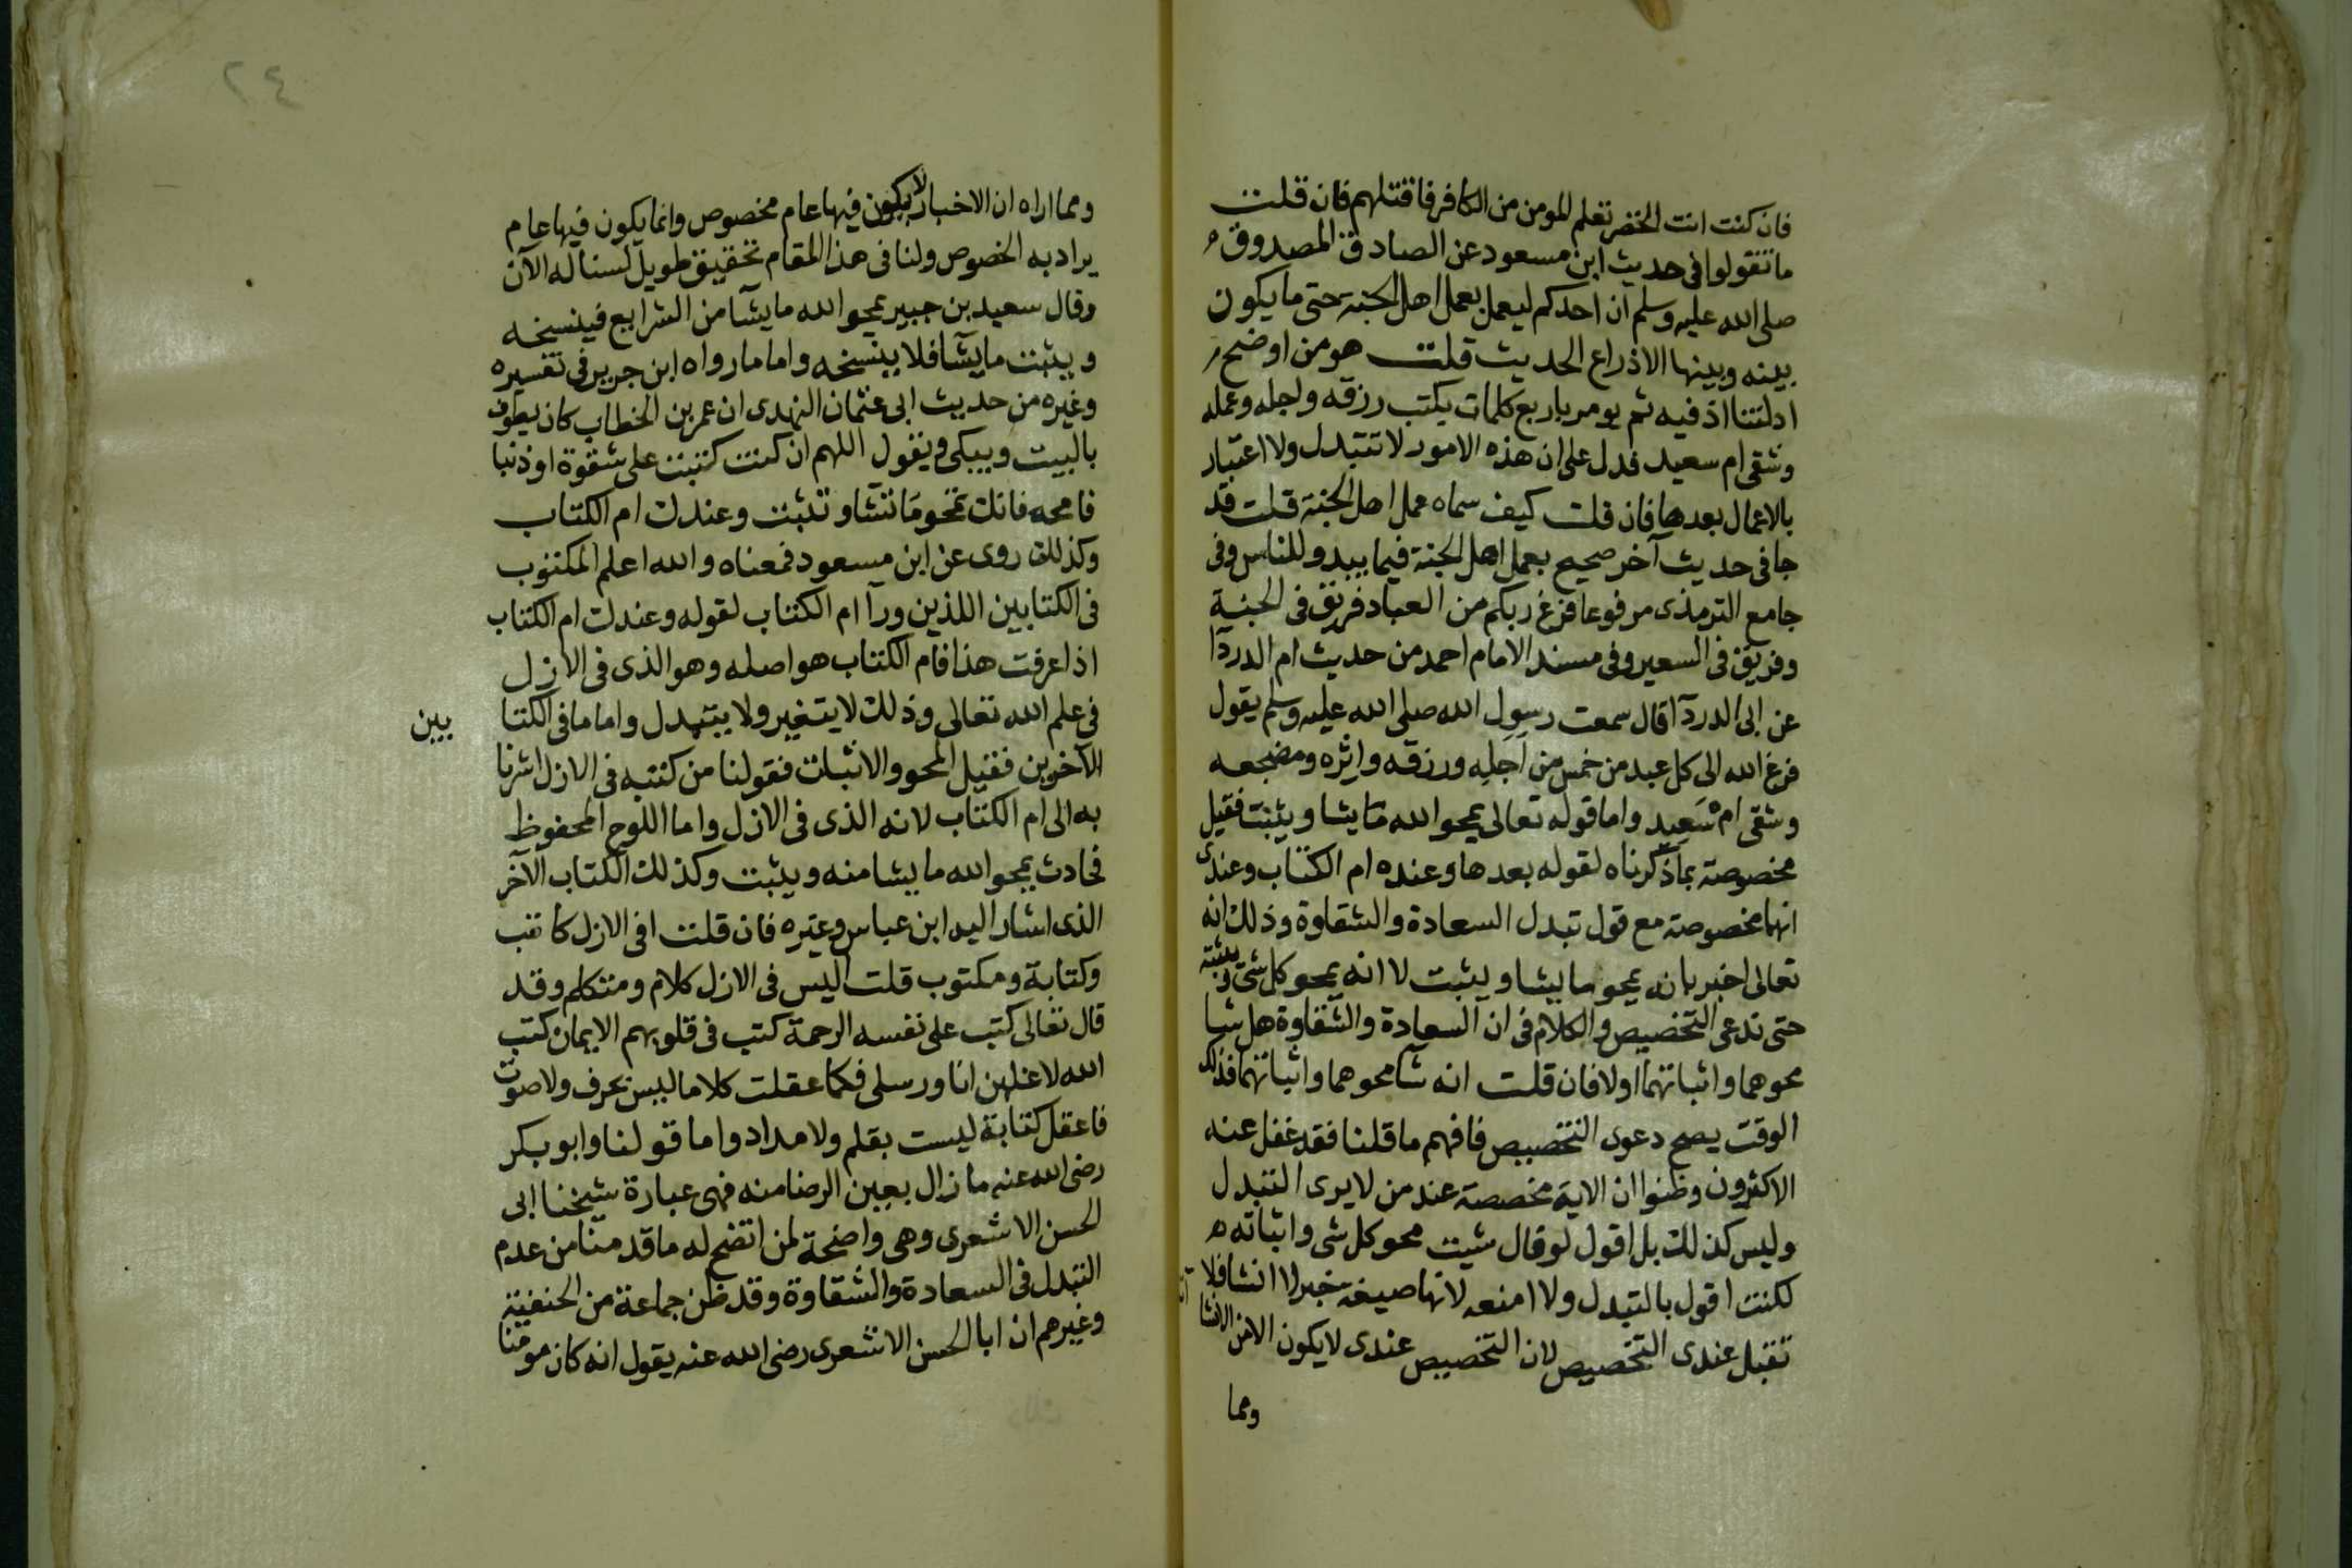 فان كنت انت الخضر تعلم المومن من الكافر فاقتلهم فان قلت
ما تقولوا فى حديث ابن مسعود عن الصادق المصدوق
صلى الله عليه وسلم ان احدكم ليعمل بعمل اهل الجنة حتى ما يكون
بينه وبينها الا ذراع الحديث قلت هو من اوضح
ادلتنا اذ فيه ثم يومر باربع كلمات يكتب رزقه واجله وعمله
وشقى ام سعيد فدل على ان هذه الامور لا تتبدل ولا اعتبار
بالاعمال بعدها فان قلت كيف سماه عمل اهل الجنة قلت قد
جا فى حديث آخر صحيح بعمل اهل الجنة فيما يبدو للناس وفى
جامع الترمذى مرفوعا فرغ ربكم من العباد فريق فى الجنة
وفريق فى السعير وفى مسند الامام احمد من حديث ام الدردآ
عن ابى الدردآ قال سمعت رسول الله صلى الله عليه وسلم يقول
فرغ الله الى كل عبد من خمس من اجله ورزقه واثره ومضجعه
وشقى ام سعيد واما قوله تعالى يمحو الله ما يشا ويثبت فقيل
مخصوصة بما ذكرناه لقوله بعدها وعنده ام الكتاب وعندى
انها مخصوصة مع قول تبدل السعادة والشقاوة وذلك انه
تعالى اخبر بانه يمحو ما يشا ويثبت لا انه يمحو كل شى ويثبته
حتى ندعى التخصيص والكلام فى ان السعادة والشقاوة هل شا
محوهما واثباتهما اولا فان قلت انه شآ محوهما واثباتهما فذلك
الوقت يصح دعوى التخصيص فافهم ما قلنا فقد غفل عنه
الاكثرون وظنوا ان الاية مخصصة عند من لا يرى التبدل
وليس كذلك بل اقول لو قال شيت محو كل شى واثباته
لكنت اقول بالتبدل ولا امنعه لانها صيغة خبر لا انشا فلا
تقبل عندى التخصيص لان التخصيص عندى لا يكون الا فى الانشا
ومما
٢٤
ومما اراه ان الاخبار لا يكون فيها عام مخصوص وانما يكون فيها عام
يراد به الخصوص ولنا فى هذا المقام تحقيق طويل لسنا له الآن
وقال سعيد بن جبير يمحو الله ما يشآ من الشرايع فينسخه
ويثبت ما يشآ فلا ينسخه واما ما رواه ابن جرير فى تفسيره
وغيره من حديث ابى عثمان النهدى ان عمر بن الخطاب كان يطوف
بالبيت ويبكى ويقول اللهم ان كنت كتبت على شقوة او ذنبا
فامحه فانك تمحو ما تشا وتثبت وعندك ام الكتاب
وكذلك روى عن ابن مسعود فمعناه والله اعلم المكتوب
فى الكتابين اللذين ورآ ام الكتاب لقوله وعندك ام الكتاب
اذا عرفت هذا فام الكتاب هو اصله وهو الذى فى الازل
فى علم الله تعالى وذلك لا يتغير ولا يتبدل واما ما فى الكتا بين
الآخرين فقيل المحو والاثبات فقولنا من كتبه فى الازل اشرنا
به الى ام الكتاب لانه الذى فى الازل واما اللوح المحفوظ
فحادث يمحو الله ما يشا منه ويثبت وكذلك الكتاب الآخر
الذى اشار اليه ابن عباس وغيره فان قلت افى الازل كاتب
وكتابة ومكتوب قلت اليس فى الازل كلام ومتكلم وقد
قال تعالى كتب على نفسه الرحمة كتب فى قلوبهم الايمان كتب
الله لاغلبن انا ورسلى فكما عقلت كلاما ليس بحرف ولا صوت
فاعقل كتابة ليست بقلم ولا مداد واما قولنا وابو بكر
رضى الله عنه ما زال بعين الرضا منه فهى عبارة شيخنا ابى
الحسن الاشعرى وهى واضحة لمن اتضح له ما قدمنا من عدم
التبدل فى السعادة والشقاوة وقد ظن جماعة من الحنفية
وغيرهم ان ابا الحسن الاشعرى رضى الله عنه يقول انه كان مومنا